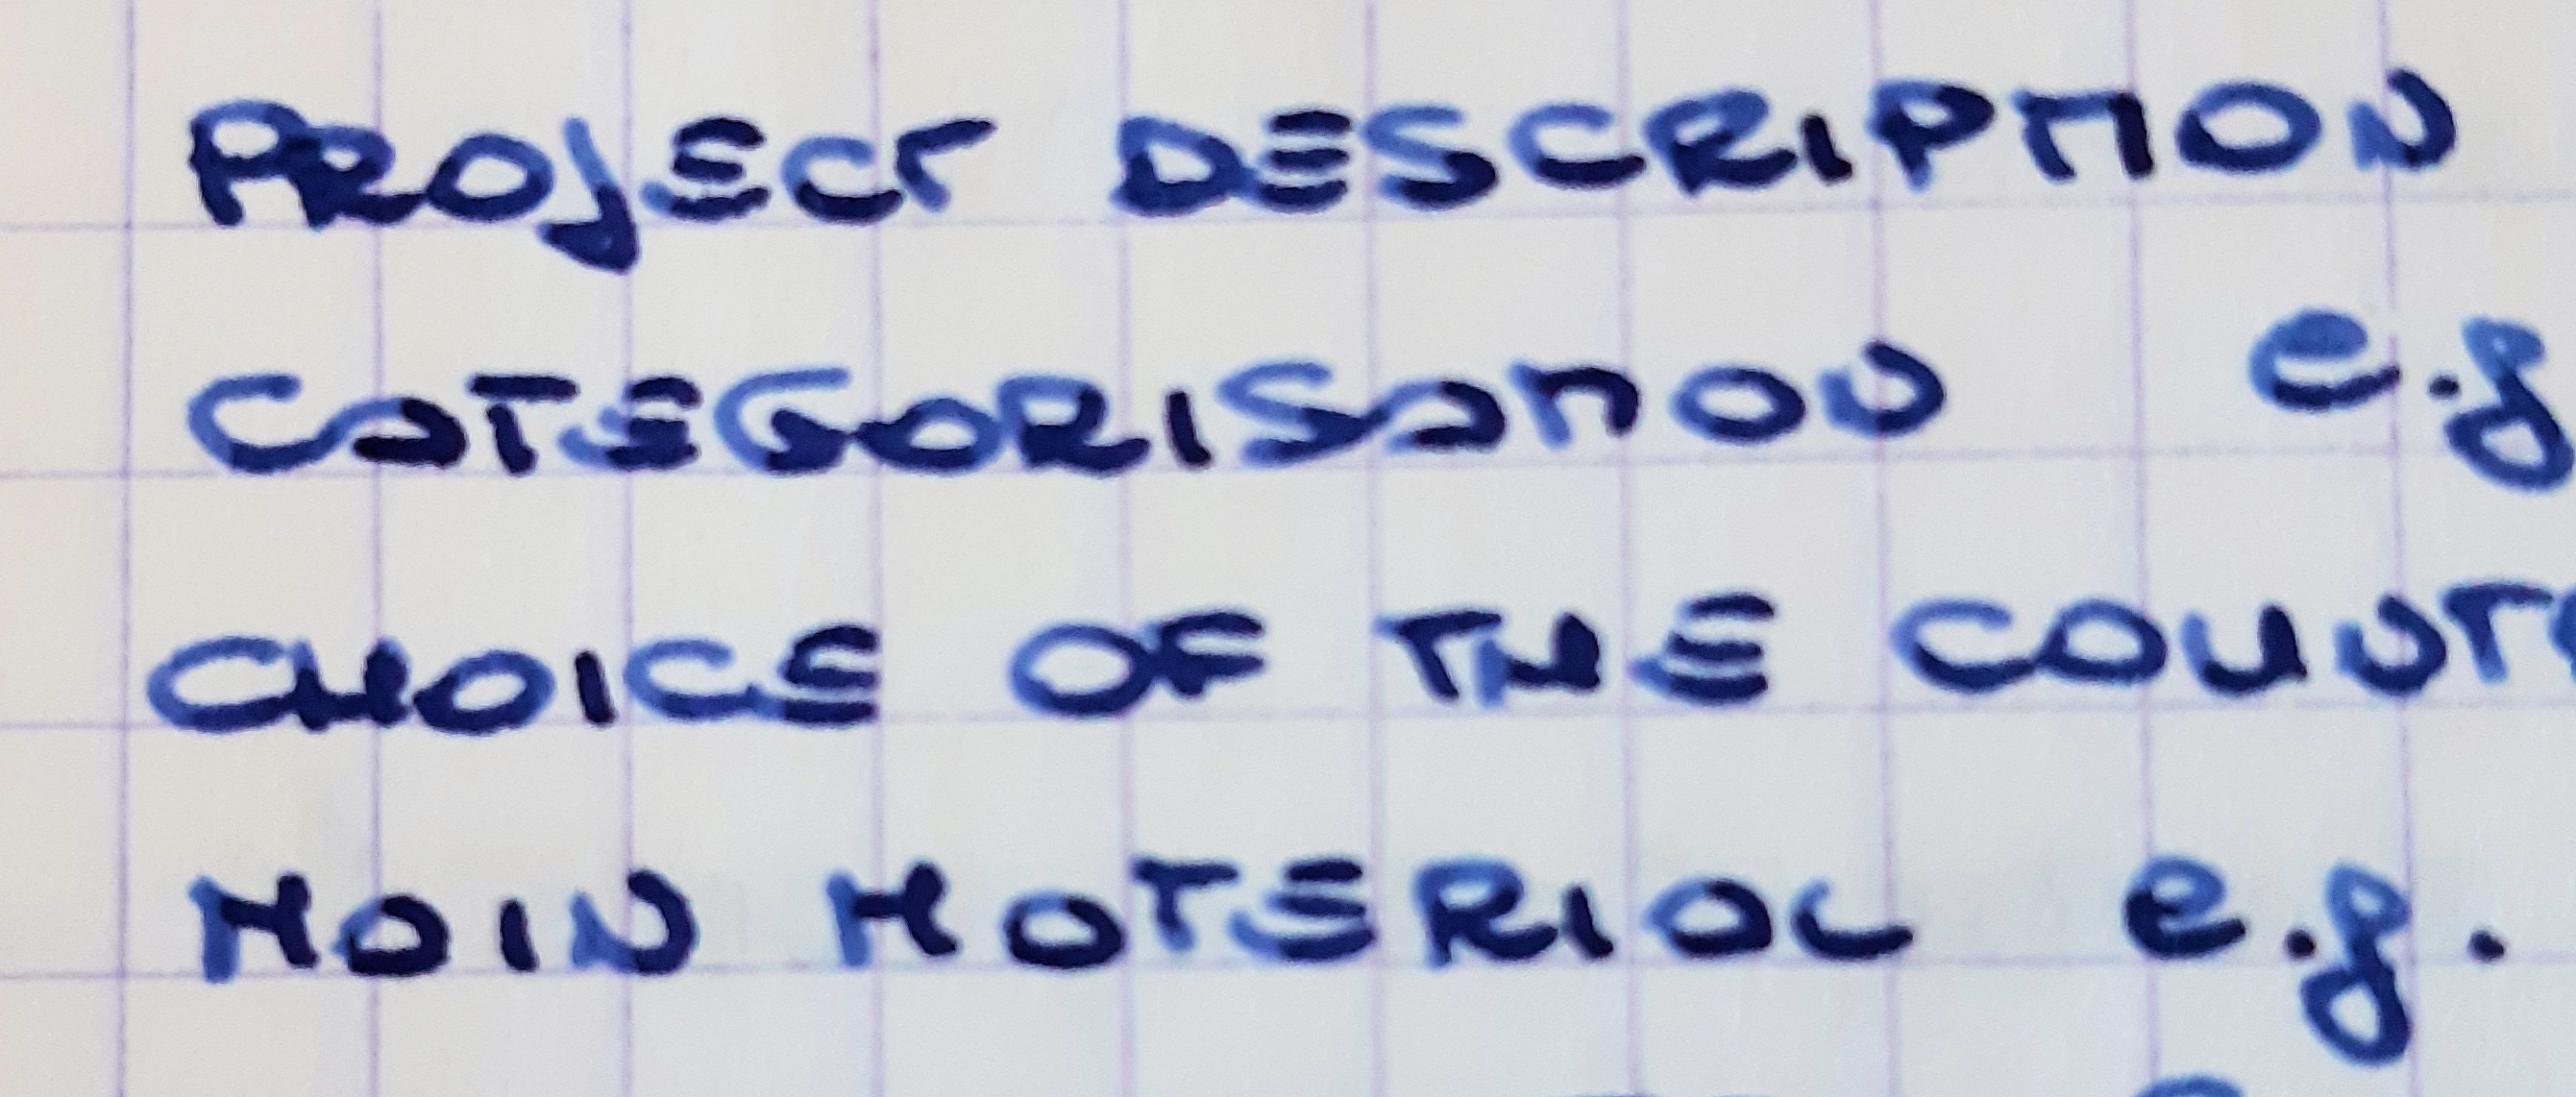 PROJECT DESCRIPTION
CATEGORISATION e.g
CHOICE OF THE COUNT
MAIN MATERIAL e.g.